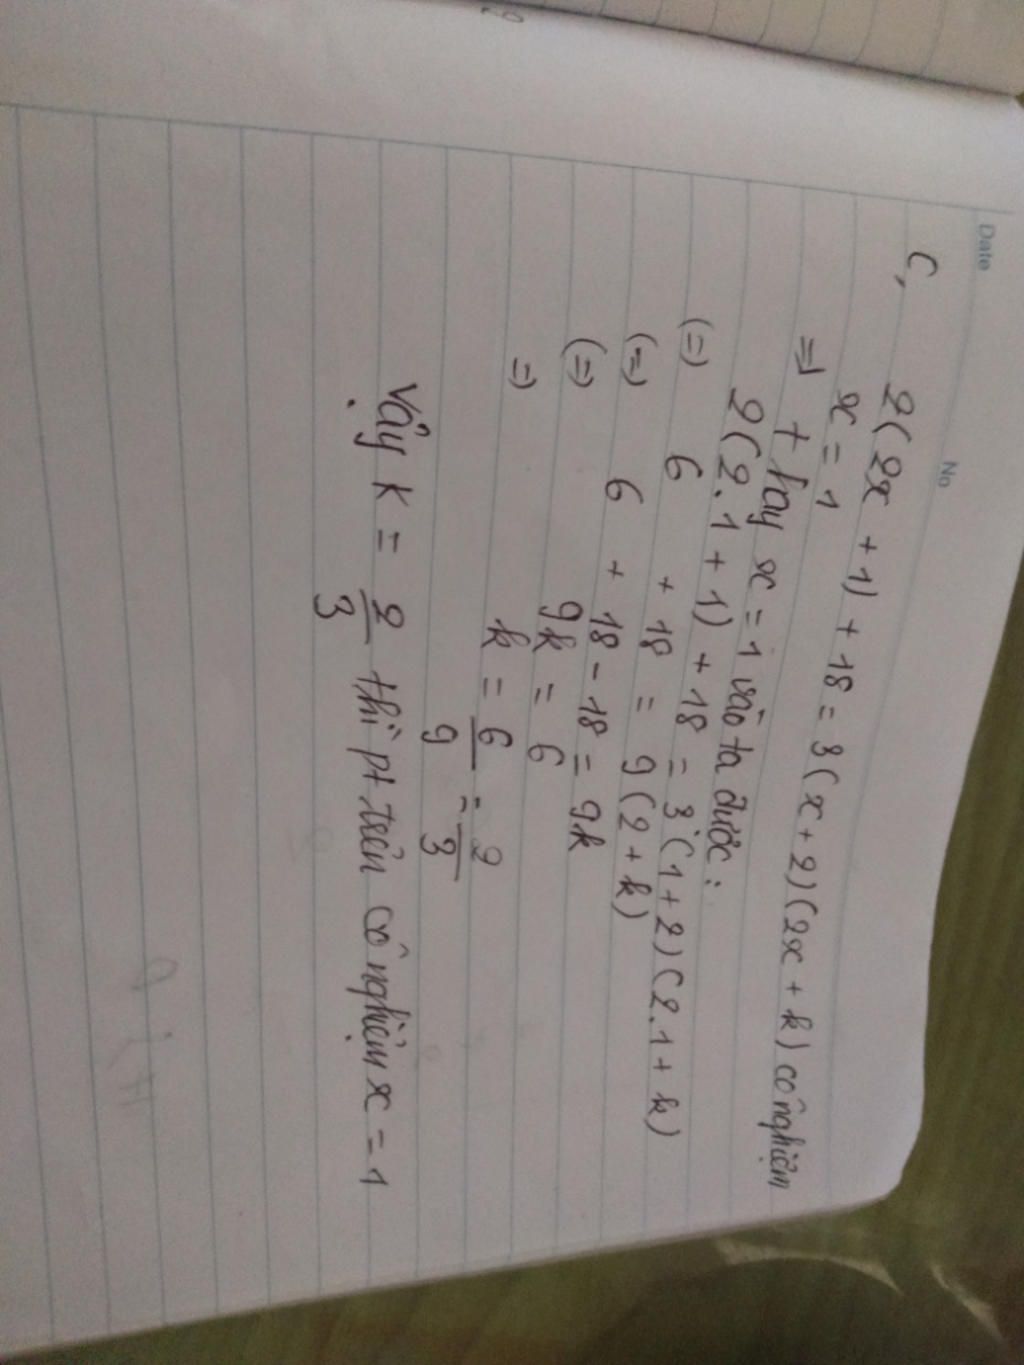 Date
No
C, 2(2x + 1) + 18 = 3(x + 2)(2x + k) có nghiệm
x = 1
=> + hay x = 1 vào ta được :
2(2.1 + 1) + 18 = 3.(1 + 2)(2.1 + k)
(=) 6 + 18 = 9(2 + k)
(=) 6 + 18 - 18 = 9k
(=) 9k = 6
=) k = 6/9 = 2/3
Vậy k = 2/3 thì pt trên có nghiệm x = 1